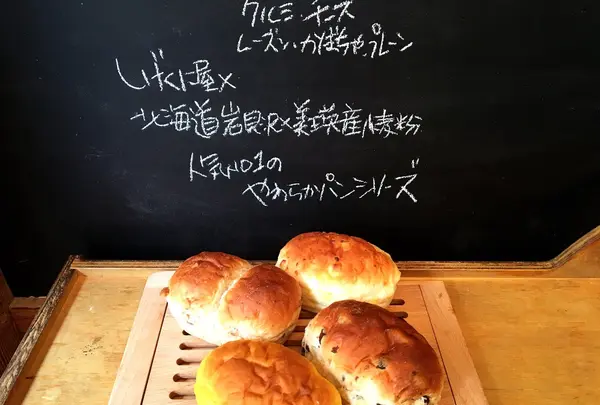 クルミ・チーズ
レーズン・かぼちゃ,プレーン
しげくに屋×
北海道岩見沢×美瑛産小麦粉
人気NO1の
やわらかパンシリーズ